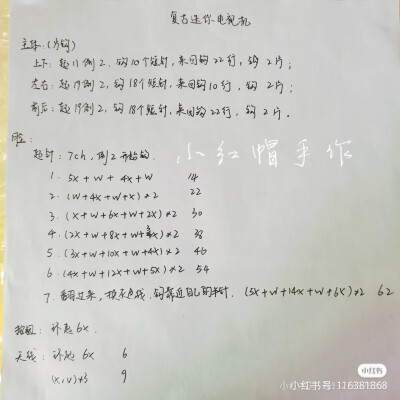 复古迷你电视机
主体:(片钩)
上下:起11倒2,钩10个短针,来回钩22行,钩2片;
左右:起19倒2,钩18个短针,来回钩10行,钩2片;
前后:起19倒2,钩18个短针,来回钩22行,钩2片。
脸:
起针:7ch,倒2开始钩,
小红帽手作
1. 5X+W+4X+W 14
2. (W+4X+W+X)*2 22
3. (X+W+6X+W+2X)*2 30
4. (2X+W+8X+W+3X)*2 38
5. (3X+W+10X+W+4X)*2 46
6. (4X+W+12X+W+5X)*2 54
7. 翻过来,换灰色线,钩靠近自己的半针,(5X+W+14X+W+6X)*2 62
按钮:环起6X.
天线:环起6X 6
(X,V)*3 9
小红书
小小红书号:116381868